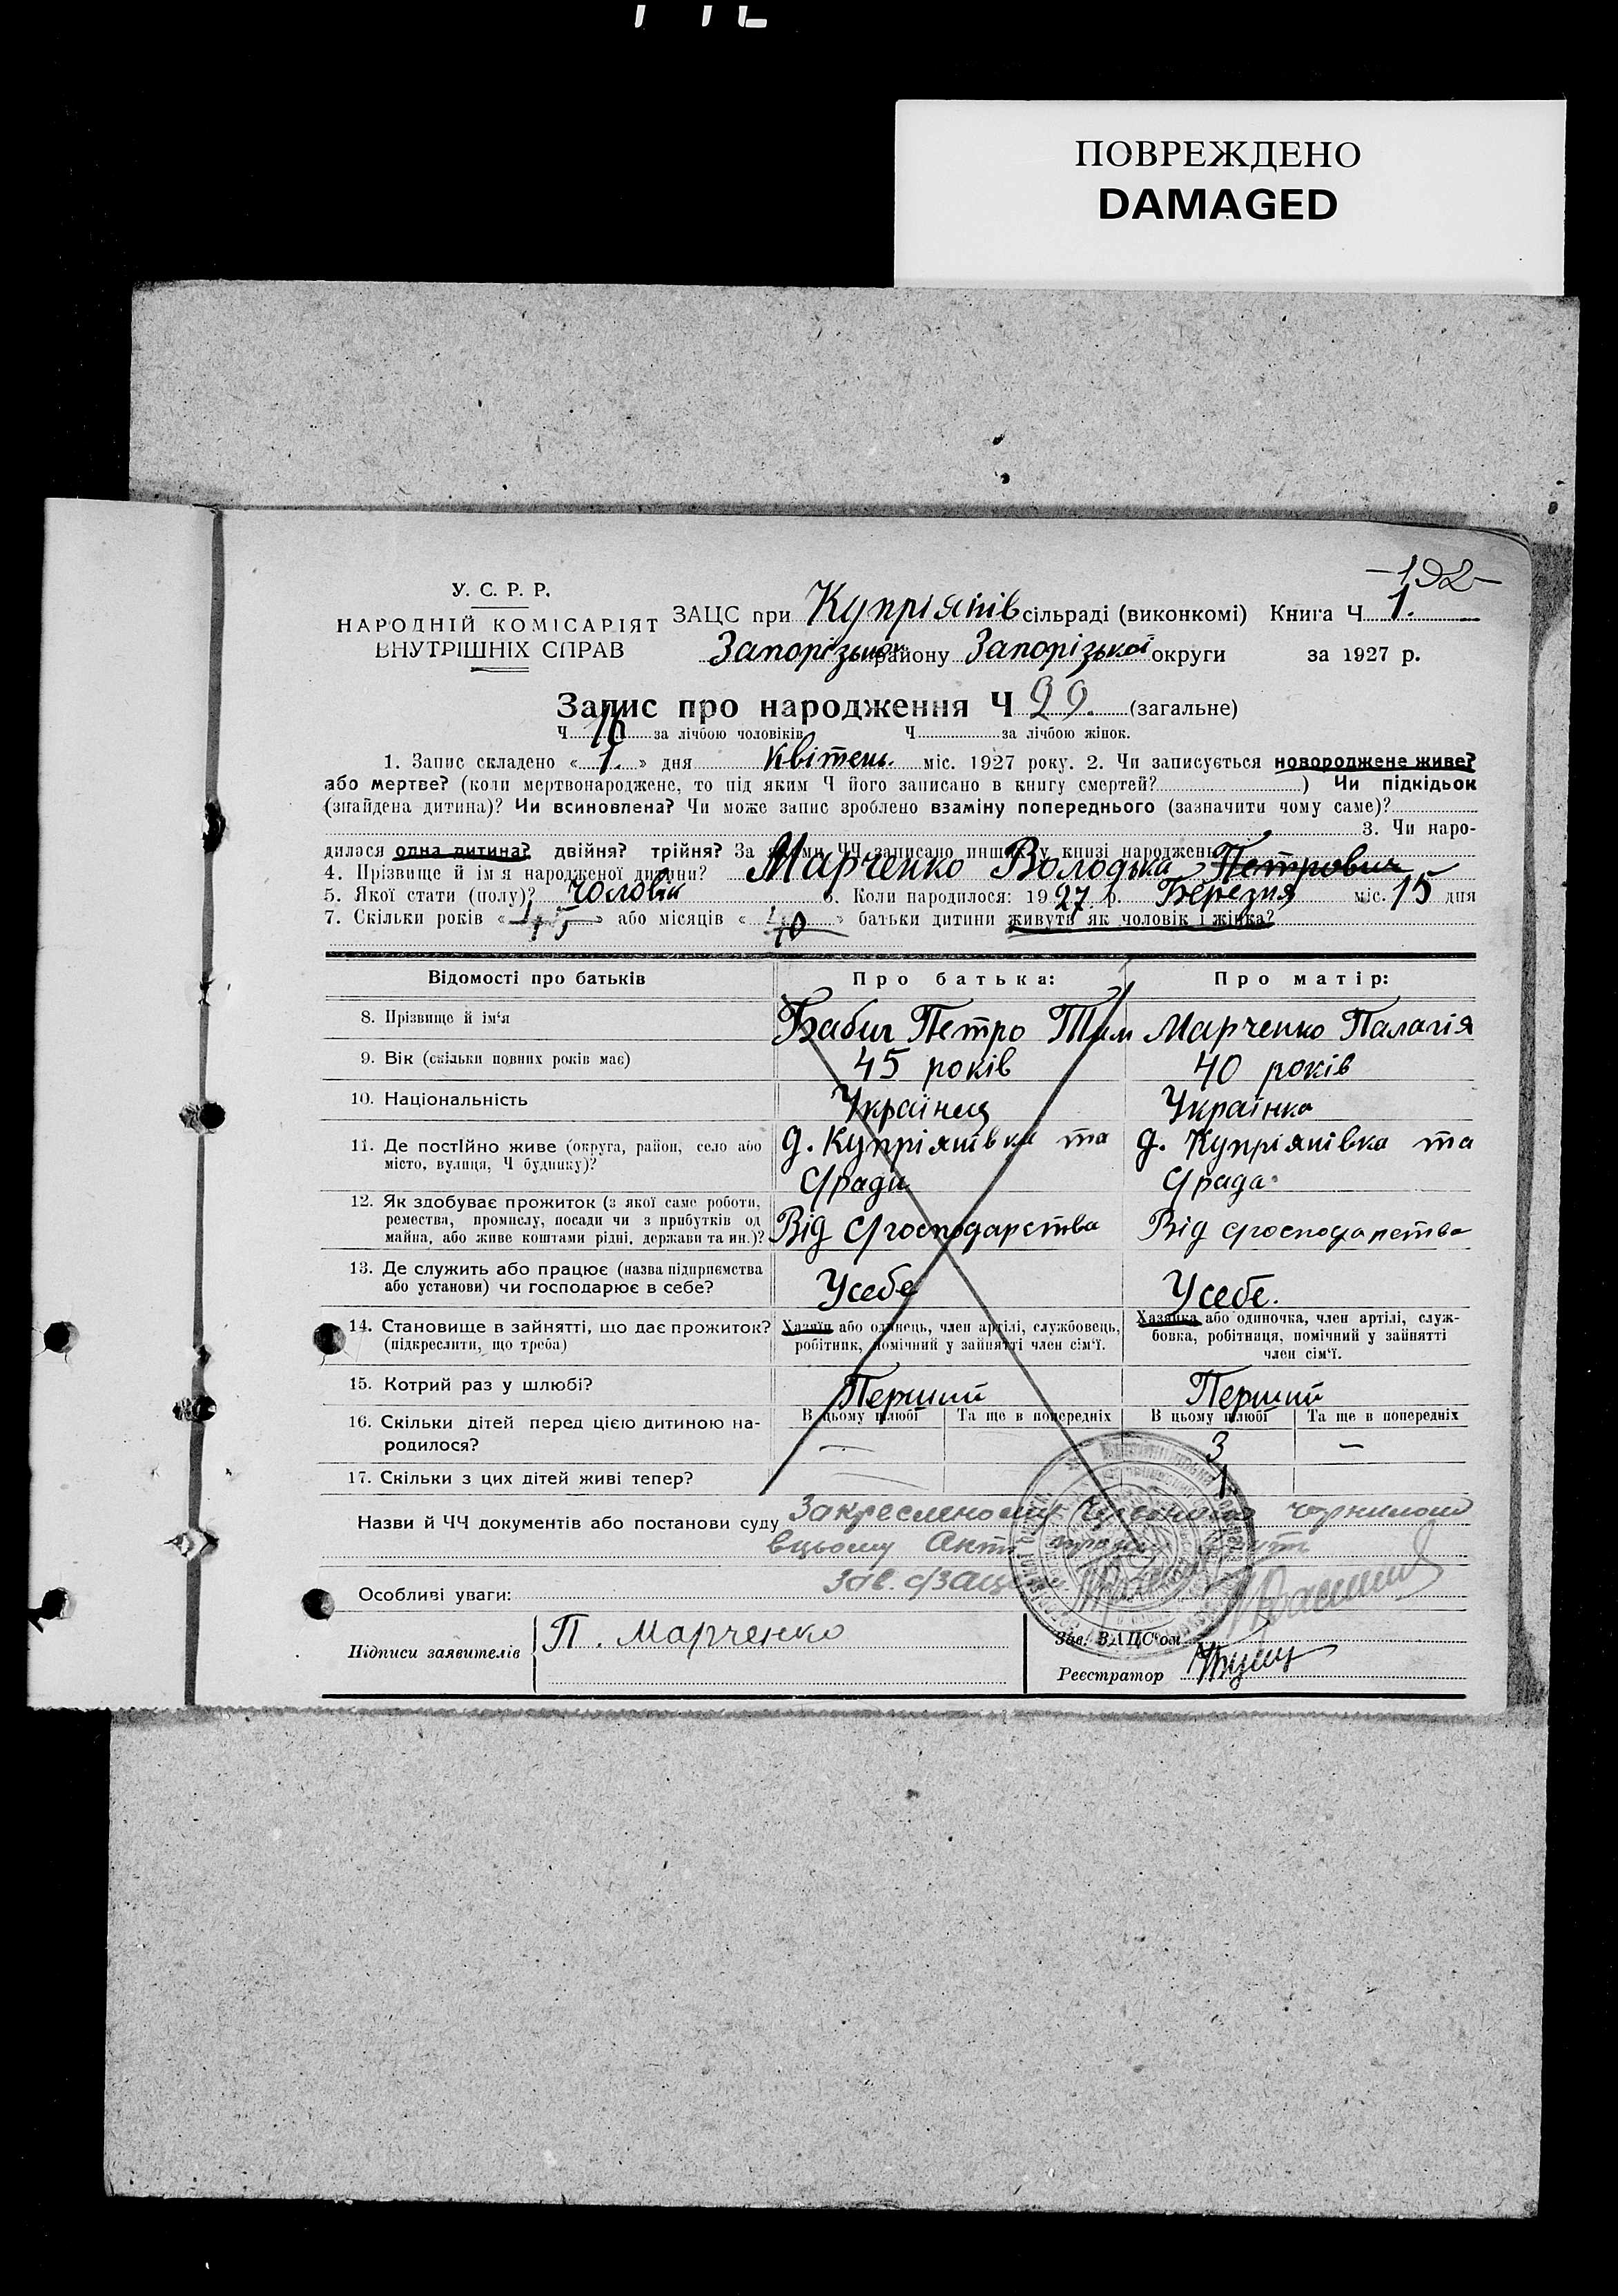 ПОВРЕЖДЕНО
DAMAGED
-192-
У. С. Р. Р.
НАРОДНІЙ КОМІСАРІЯТ
ВНУТРІШНІХ СПРАВ
ЗАЦС при Купріянів сільраді (виконкомі) Книга Ч 1.
Запорізьког району Запорізької округи за 1927 р.
Запис про народження Ч 29. (загальне)
Ч 16 за лічбою чоловіків Ч за лічбою жінок.
1. Запис складено « 1. » дня Квітень. міс. 1927 року. 2. Чи записується новороджене живе?
або мертве? (коли мертвонароджене, то під яким Ч його записано в книгу смертей? ) Чи підкідьок
(знайдена дитина)? Чи всиновлена? Чи може запис зроблено взаміну попереднього (зазначити чому саме)?
3. Чи наро-
дилася одна дитина? двійня? трійня? За якими ЧЧ записано инших у книзі народжень
4. Прізвище й ім'я народженої дитини? Марченко Володька Петрович
5. Якої стати (полу)? Чоловік 6. Коли народилося: 1927 р. Березня міс. 15 дня
7. Скільки років « » або місяців « » батьки дитини живуть як чоловік і жінка?
Відомості про батьків Про батька: Про матір:
8. Прізвище й ім'я Бабич Петро Тим Марченко Палагія
9. Вік (скільки повних років має) 45 років 40 років
10. Національність Українец Українка
11. Де постійно живе (округа, район, село або д. Купріянівка та д. Купріянівка та
місто, вулиця, Ч будинку)? С/ради С/рада
12. Як здобуває прожиток (з якої саме роботи,
ремества, промислу, посади чи з прибутків од
майна, або живе коштами рідні, держави та ин.)? Від С/господарства Від С/господарства
13. Де служить або працює (назва підприємства
або установи) чи господарює в себе? Усебе Усебе.
14. Становище в зайнятті, що дає прожиток? Хазяїн або одинець, член артілі, службовець, Хазяйка або одиночка, член артілі, служ-
(підкреслити, що треба) робітник, помічний у зайнятті член сім'ї. бовка, робітниця, помічний у зайнятті
член сім'ї.
15. Котрий раз у шлюбі? Перший Перший
16. Скільки дітей перед цією дитиною на- В цьому шлюбі Та ще в попередніх В цьому шлюбі Та ще в попередніх
родилося? — 3 —
17. Скільки з цих дітей живі тепер? — 1
Назви й ЧЧ документів або постанови суду чорнилом
вцьому Акті
Особливі уваги: Зав. с/ЗАЦС
Підписи заявителів П. Марченко Зав. ЗАЦС'ом
Реєстратор